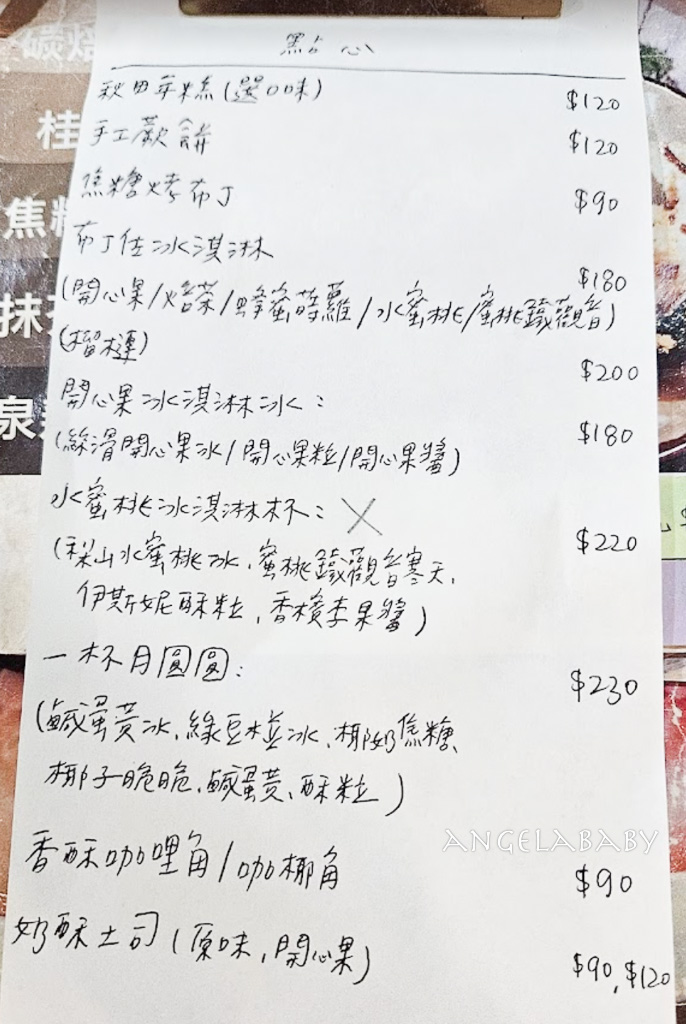 點心
秋田年糕(選口味) $120
手工蕨餅 $120
焦糖烤布丁 $90
布丁佐冰淇淋 $180
(開心果/焙茶/蜂蜜蒔蘿/水蜜桃/蜜桃鐵觀音)
(榴槤) $200
開心果冰淇淋冰: $180
(絲滑開心果冰/開心果粒/開心果醬)
水蜜桃冰淇淋杯: X $220
(梨山水蜜桃冰、蜜桃鐵觀音寒天、
伊斯妮酥粒、香檳李果醬)
一杯月圓圓: $230
(鹹蛋黃冰、綠豆椪冰、椰奶焦糖、
椰子脆脆、鹹蛋黃、酥粒)
香酥咖哩角/咖椰角 $90
奶酥土司(原味,開心果) $90,$120
ANGELABABY
碳燒
桂
焦糖
抹茶
泉